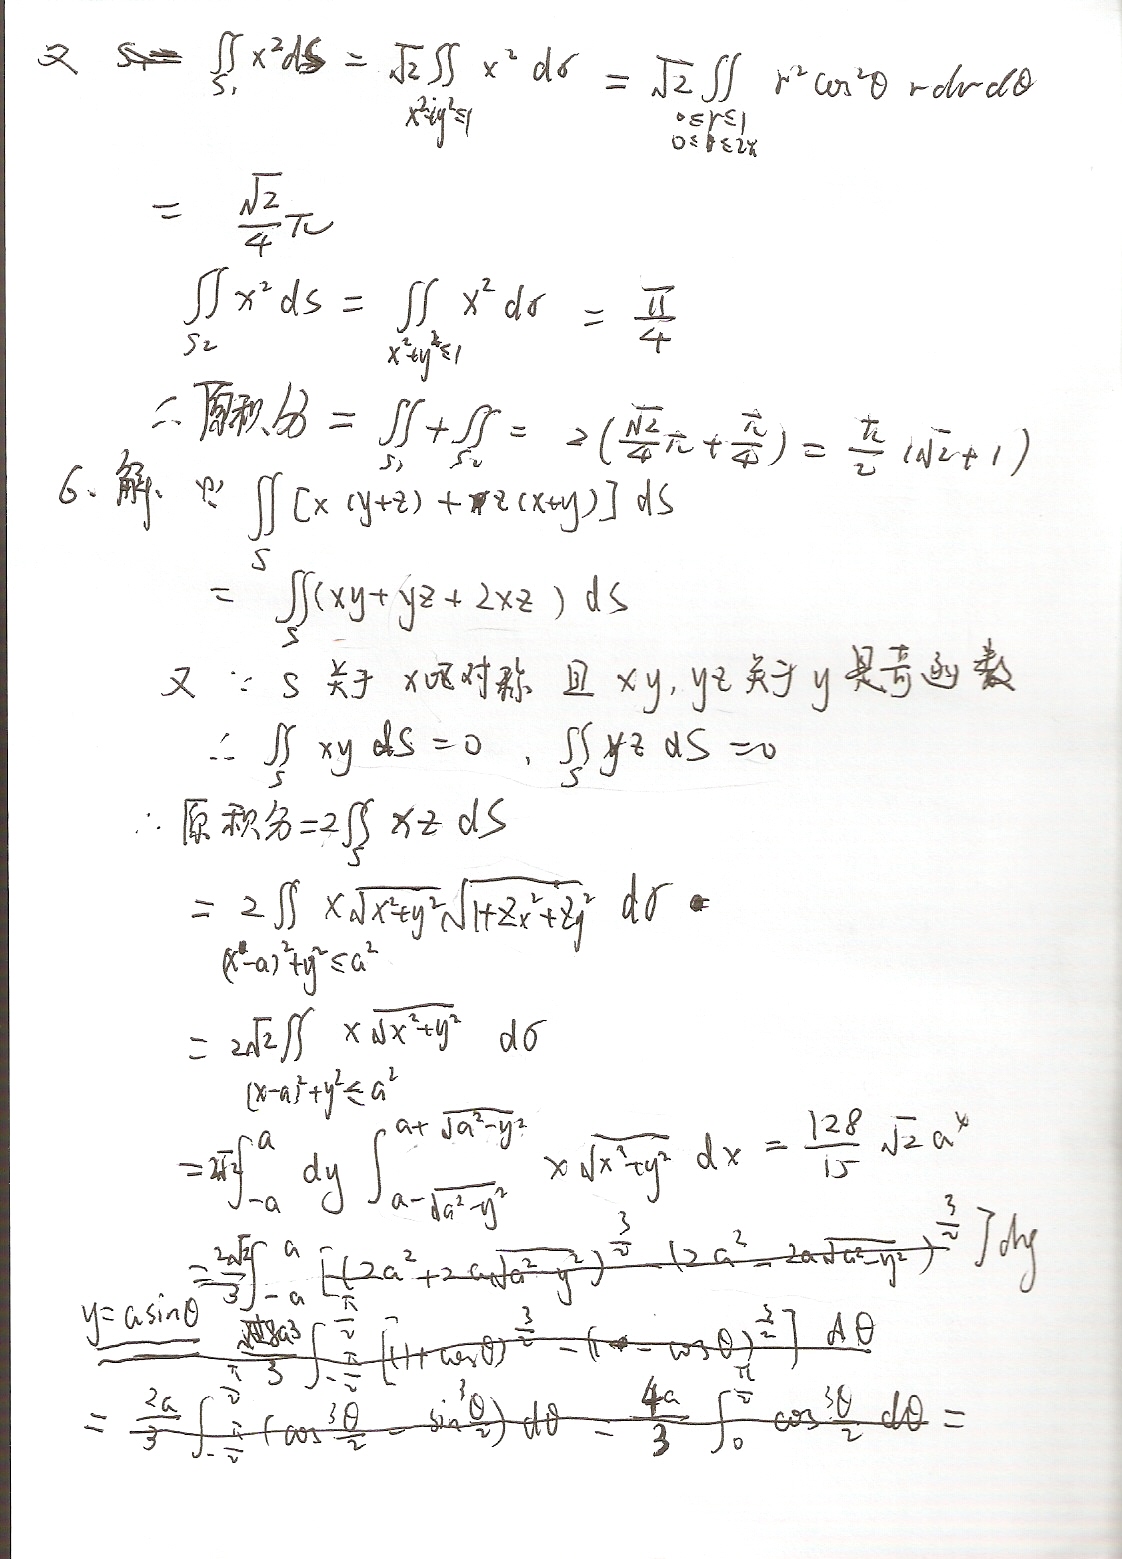 又 ∬_{S₁} x²dS = √2 ∬_{x²+y²≤1} x² dσ = √2 ∬_{0≤r≤1, 0≤θ≤2π} r²cos²θ rdrdθ
= √2/4 π
∬_{S₂} x² dS = ∬_{x²+y²≤1} x² dσ = π/4
∴ 原积分 = ∬_{S₁} + ∬_{S₂} = 2(√2/4 π + π/4) = π/2 (√2+1)
6. 解. ∵ ∬_S [x(y+z) + z(x+y)] dS
= ∬_S (xy + yz + 2xz) dS
又 ∵ S 关于 xoz对称 且 xy, yz 关于 y 是奇函数
∴ ∬_S xy dS = 0 , ∬_S yz dS = 0
∴ 原积分 = 2∬_S xz dS
= 2∬_{(x-a)²+y²≤a²} x√(x²+y²) √(1+Zx²+Zy²) dσ
= 2√2 ∬_{(x-a)²+y²≤a²} x√(x²+y²) dσ
= 2√2 ∫_{-a}^{a} dy ∫_{a-√(a²-y²)}^{a+√(a²-y²)} x√(x²+y²) dx = 128/15 √2 a⁴
= 2√2/3 ∫_{-a}^{a} [(2a²+2a√(a²-y²))^{3/2} - (2a²-2a√(a²-y²))^{3/2}] dy
y=asinθ 3 ∫_{-π/2}^{π/2} [(1+cosθ)^{3/2} - (1-cosθ)^{3/2}] dθ
= 2a/3 ∫_{-π/2}^{π/2} (cos³θ/2 - sin³θ/2) dθ = 4a/3 ∫_0^{π/2} cos³θ/2 dθ =